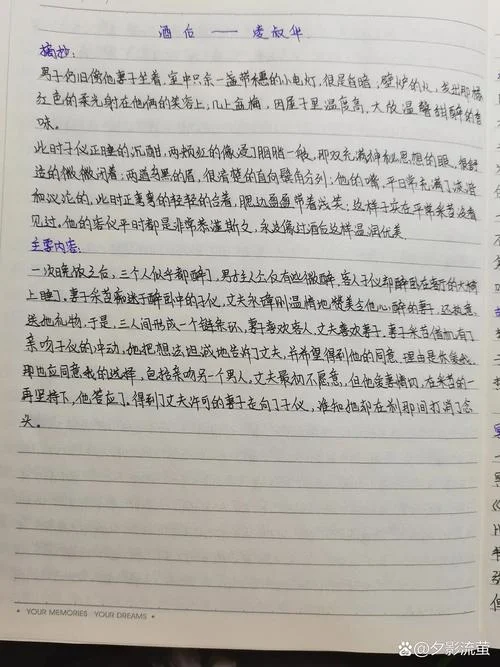 酒后 —— 凌叔华
摘抄:
男子仍旧傍他妻子坐着,室中只余一盏带穗的小电灯,很是昏暗,壁炉的火,发出那橘
红色的柔光射在他俩的笑容上,几上盆梅,因屋子里温度高,大放温馨甜醉的香
味。
此时子仪正睡的沉酣,两颊红的像浸了胭脂一般,那双充满神秘思想的眼,很舒
适的微微闭着;两道乌黑的眉,很清楚的直向鬓角分列;他的嘴,平日常充满了诙谐
和议论的,此时正弯弯的轻轻的合着,腮边盈盈带着浅笑;这样子实在平常采苕没看
见过。他的容仪平时都是非常恭谨斯文,永没像过酒后这样温润优美。
主要内容:
一次晚饭之后,三个人似乎都醉了,男主人公仅有些微醉,客人子仪却醉卧在客厅的大椅
上睡了。妻子采苕痴迷于醉卧中的子仪,丈夫永璋则温情地赞美令他心醉的妻子,还执意
送她礼物,于是,三人间形成一个链条环,妻子喜欢客人,丈夫喜欢妻子。妻子采苕借机有了
亲吻子仪的冲动,她把想法坦诚地告诉了丈夫,并希望得到他的同意,理由是你爱我,
那也应同意我的选择,包括亲吻另一个男人。丈夫最初不愿意,但他爱妻情切,在采苕的一
再坚持下,他答应了。得到了丈夫许可的妻子走向了子仪,谁知她却在刹那间打消了念
头。
• YOUR MEMORIES YOUR DREAMS •
夕影流萤